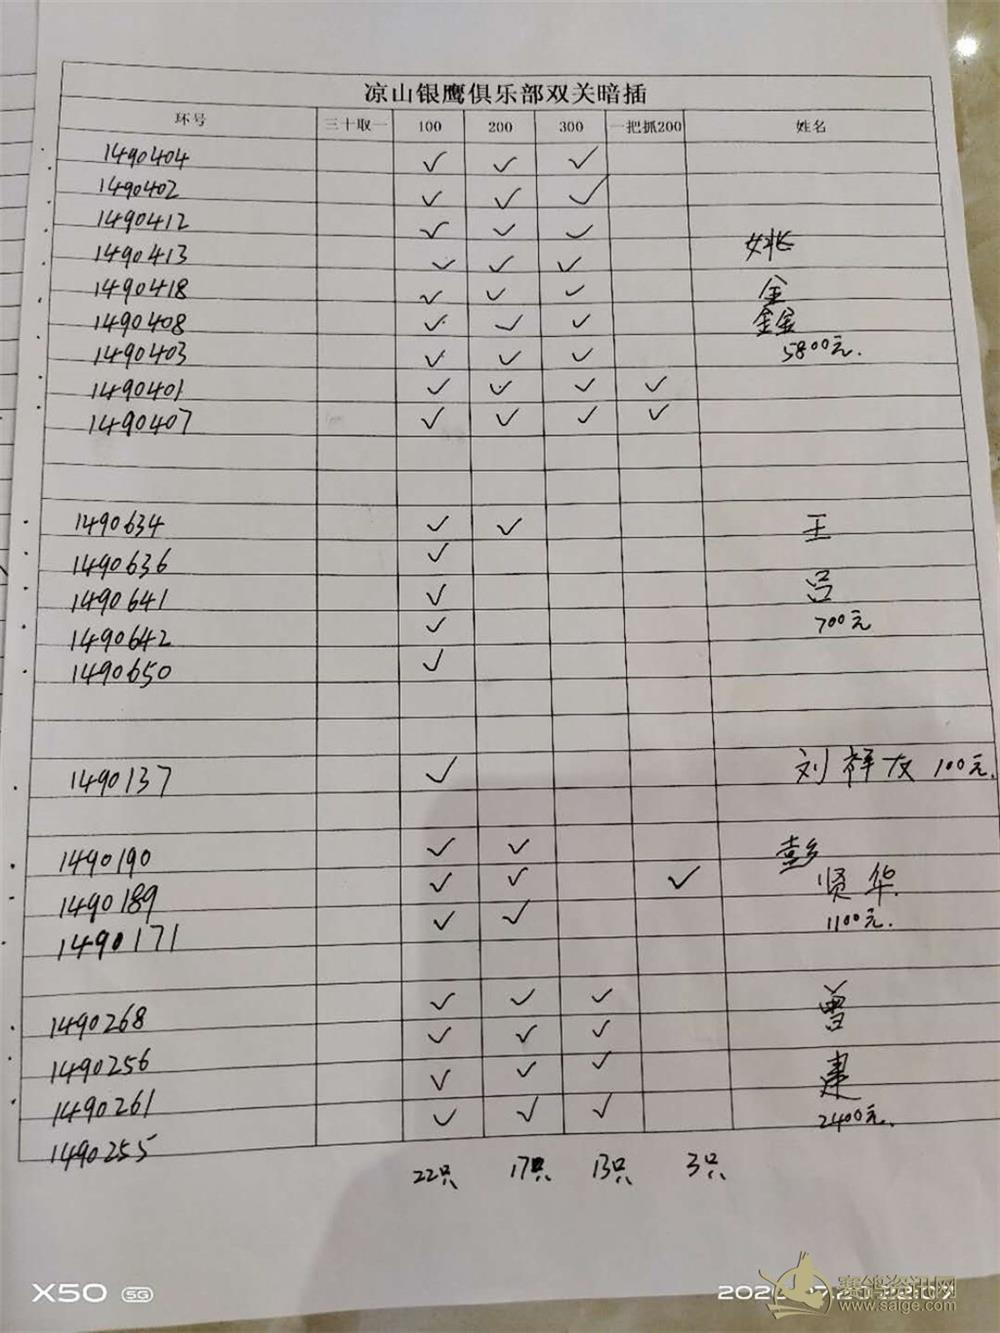 凉山银鹰俱乐部双关暗插
环号 三十取一 100 200 300 一把抓200 姓名
1490404 ✓ ✓ ✓
1490402 ✓ ✓ ✓
1490412 ✓ ✓ ✓
1490413 ✓ ✓ ✓ 姚
1490418 ✓ ✓ ✓ 金
1490408 ✓ ✓ ✓ 鑫
1490403 ✓ ✓ ✓ 5800元.
1490401 ✓ ✓ ✓ ✓
1490407 ✓ ✓ ✓ ✓
1490634 ✓ ✓ 王
1490636 ✓
1490641 ✓ 吕
1490642 ✓ 700元
1490650 ✓
1490137 ✓ 刘祥友 100元.
1490190 ✓ ✓ 彭
1490189 ✓ ✓ ✓ 贤华
1490171 ✓ ✓ 1100元.
1490268 ✓ ✓ ✓ 曾
1490256 ✓ ✓ ✓
1490261 ✓ ✓ ✓ 建
1490255 ✓ ✓ ✓ 2400元.
22只 17只 13只 3只
X50 5G
赛鸽资讯网
www.saige.com